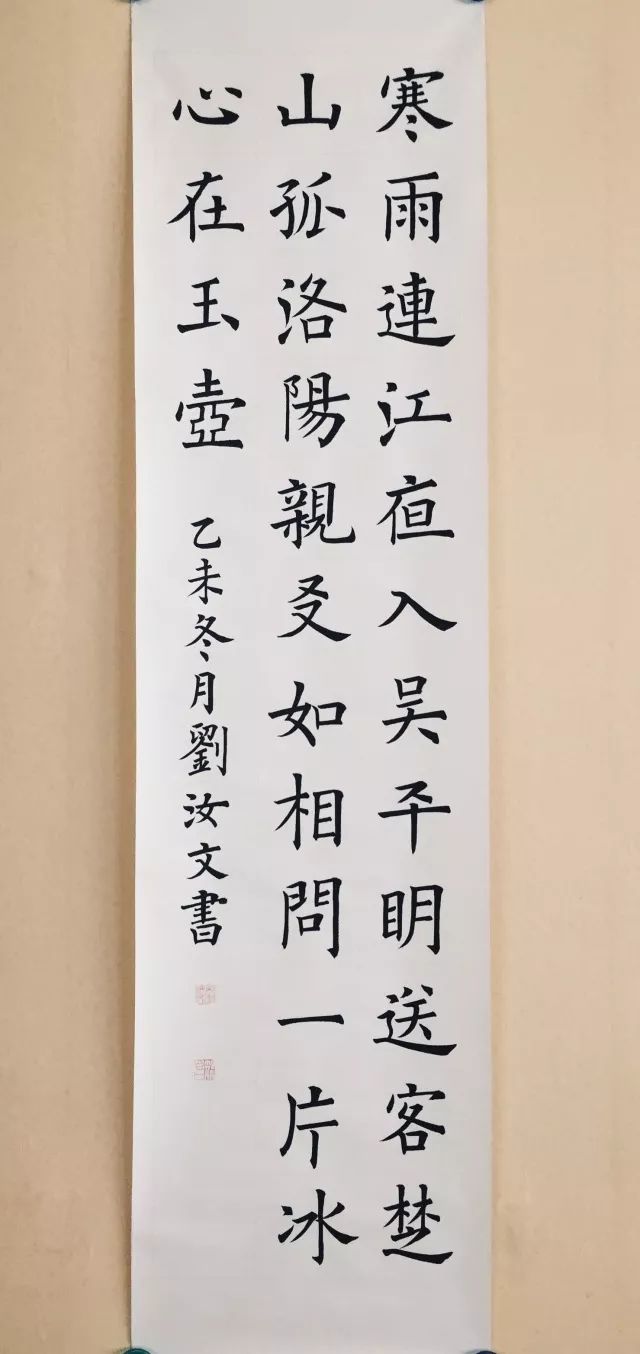 寒雨連江夜入吴平明送客楚
山孤洛陽親友如相問一片冰
心在玉壺
乙未冬月劉汝文書